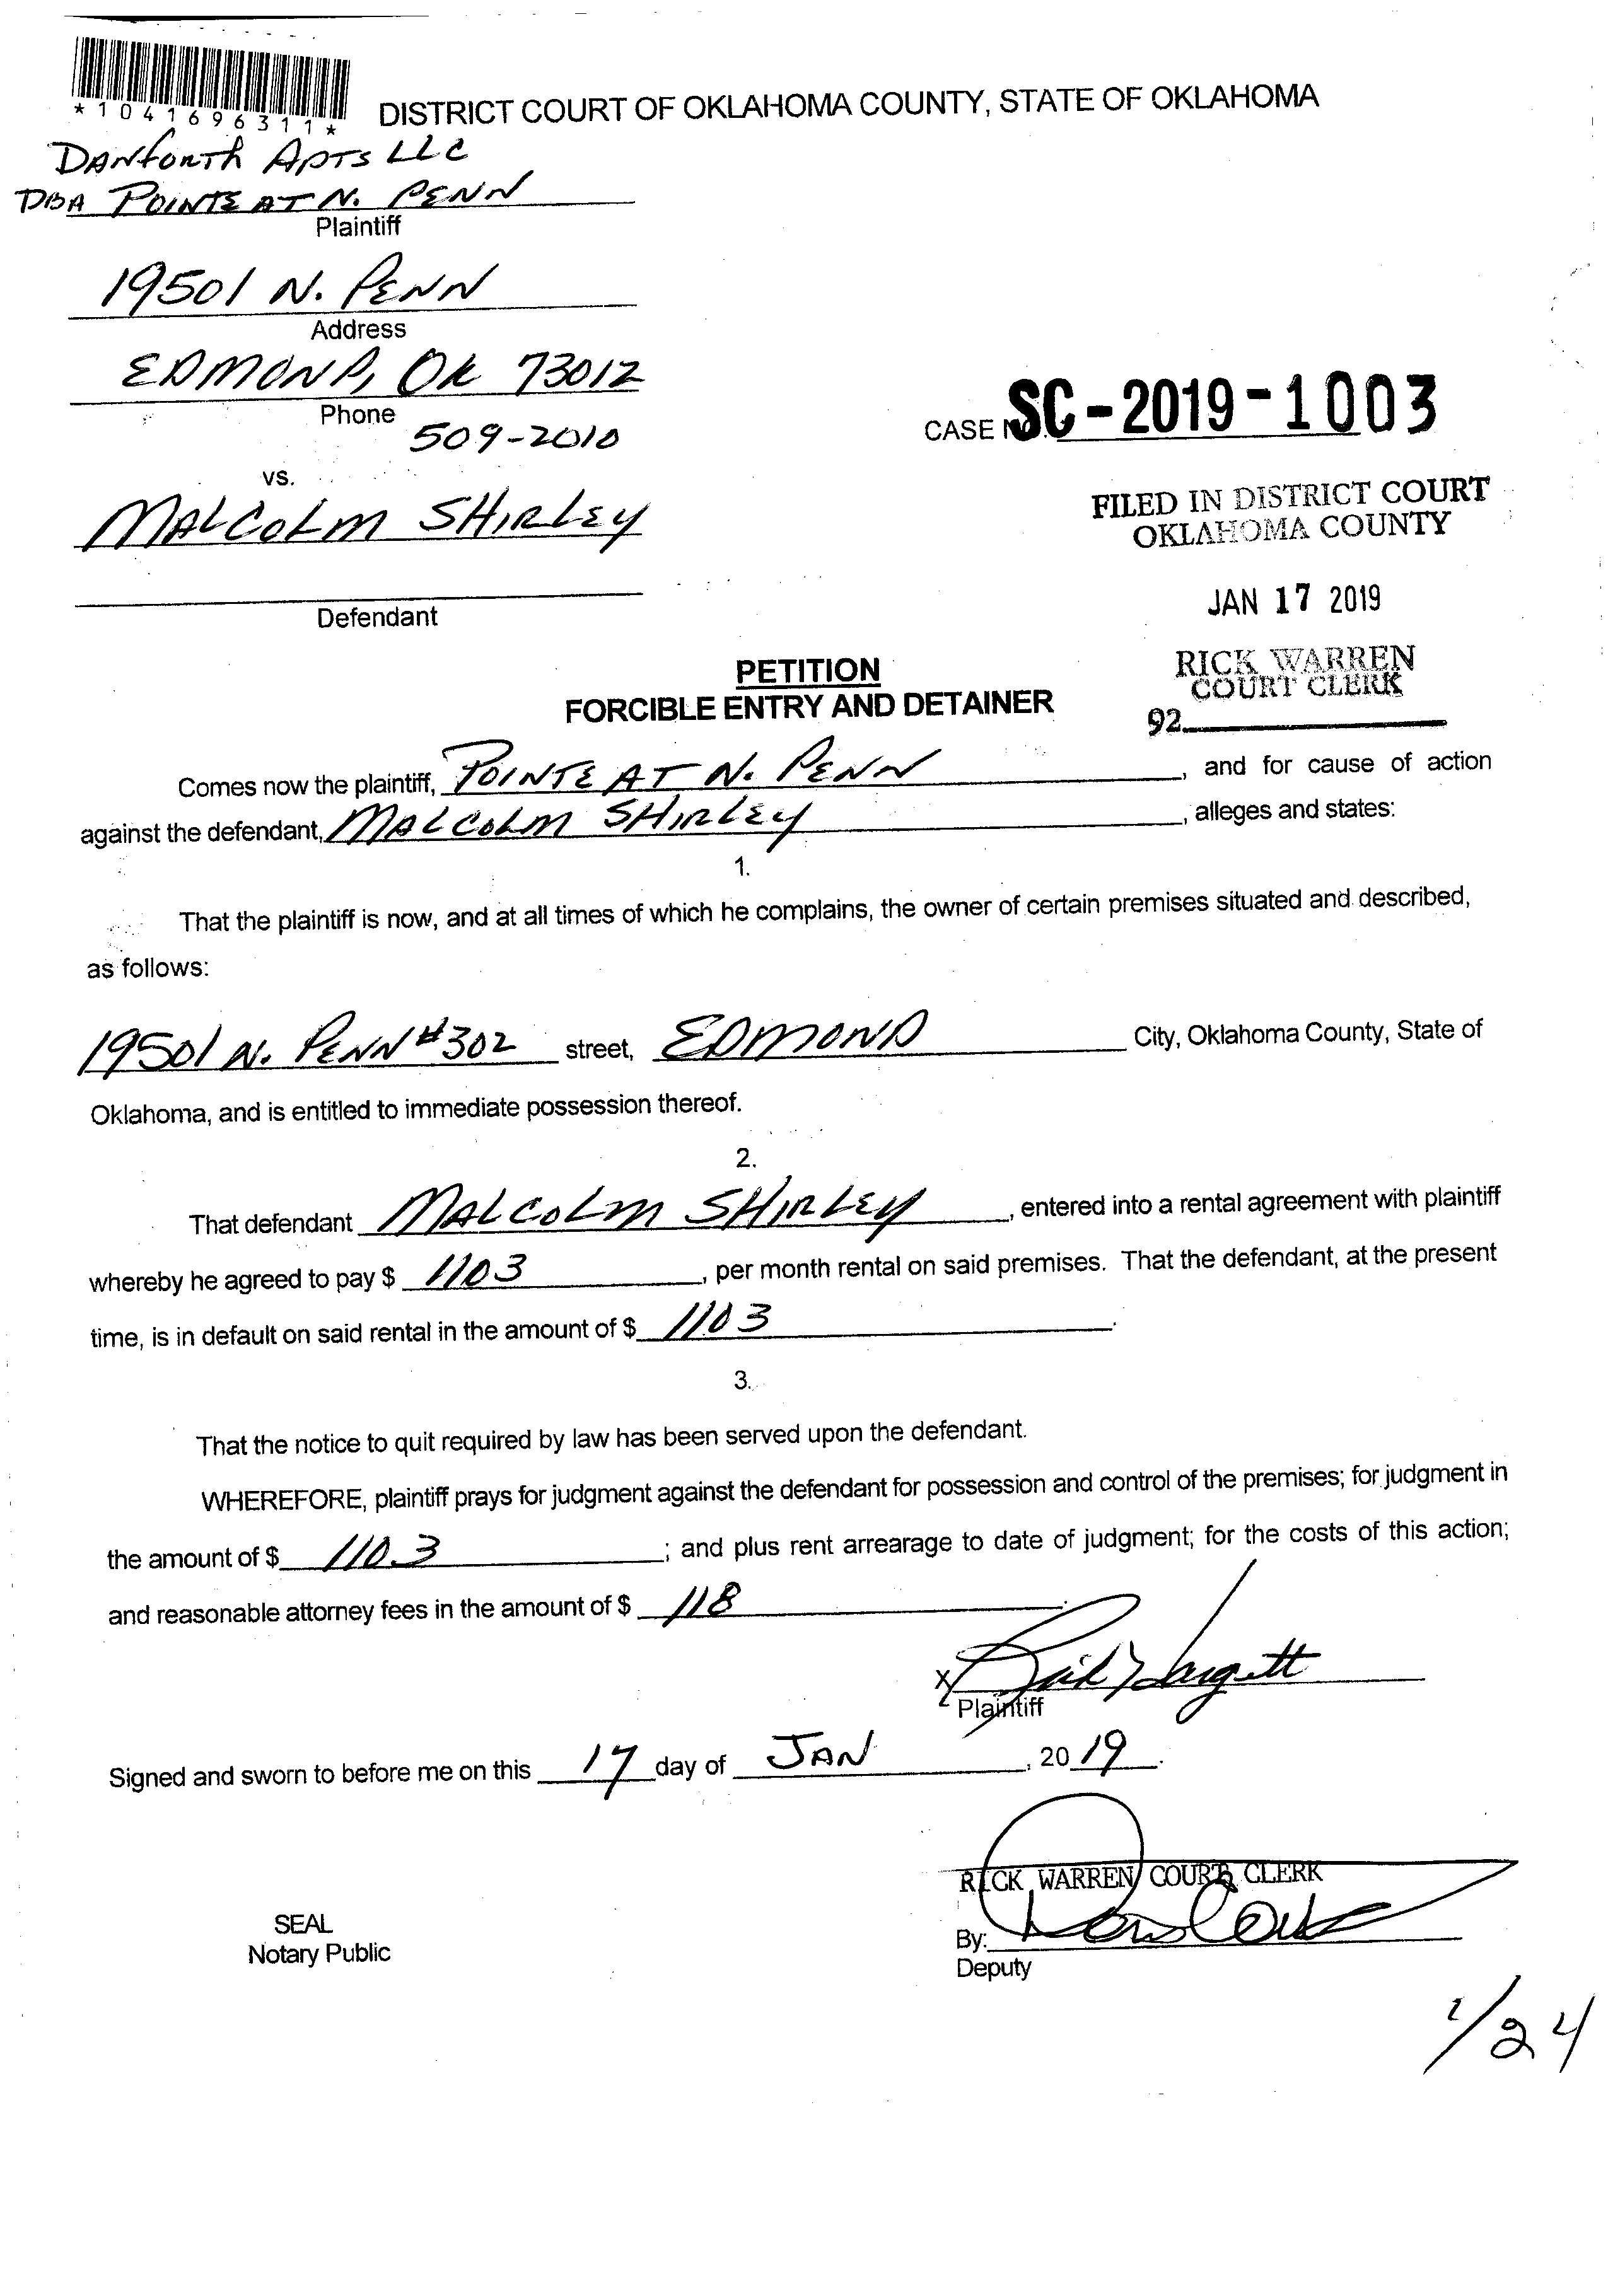 *1041696311*
DISTRICT COURT OF OKLAHOMA COUNTY, STATE OF OKLAHOMA
DANFORTH APTS LLC
DBA POINTE AT N. PENN
Plaintiff
19501 N. PENN
Address
EDMOND, OK 73012
Phone
509-2010
CASE NO. SC-2019-1003
vs.
MALCOLM SHIRLEY
Defendant
FILED IN DISTRICT COURT
OKLAHOMA COUNTY
JAN 17 2019
RICK WARREN
COURT CLERK
92
PETITION
FORCIBLE ENTRY AND DETAINER
Comes now the plaintiff, POINTE AT N. PENN, and for cause of action
against the defendant, MALCOLM SHIRLEY, alleges and states:
1.
That the plaintiff is now, and at all times of which he complains, the owner of certain premises situated and described,
as follows:
19501 N. PENN #302 street, EDMOND City, Oklahoma County, State of
Oklahoma, and is entitled to immediate possession thereof.
2.
That defendant MALCOLM SHIRLEY, entered into a rental agreement with plaintiff
whereby he agreed to pay $ 1103, per month rental on said premises. That the defendant, at the present
time, is in default on said rental in the amount of $ 1103.
3.
That the notice to quit required by law has been served upon the defendant.
WHEREFORE, plaintiff prays for judgment against the defendant for possession and control of the premises; for judgment in
the amount of $ 1103; and plus rent arrearage to date of judgment; for the costs of this action;
and reasonable attorney fees in the amount of $ 118.
X
Plaintiff
Signed and sworn to before me on this 17 day of JAN, 2019.
RICK WARREN COURT CLERK
SEAL
Notary Public
By:
Deputy
1/24